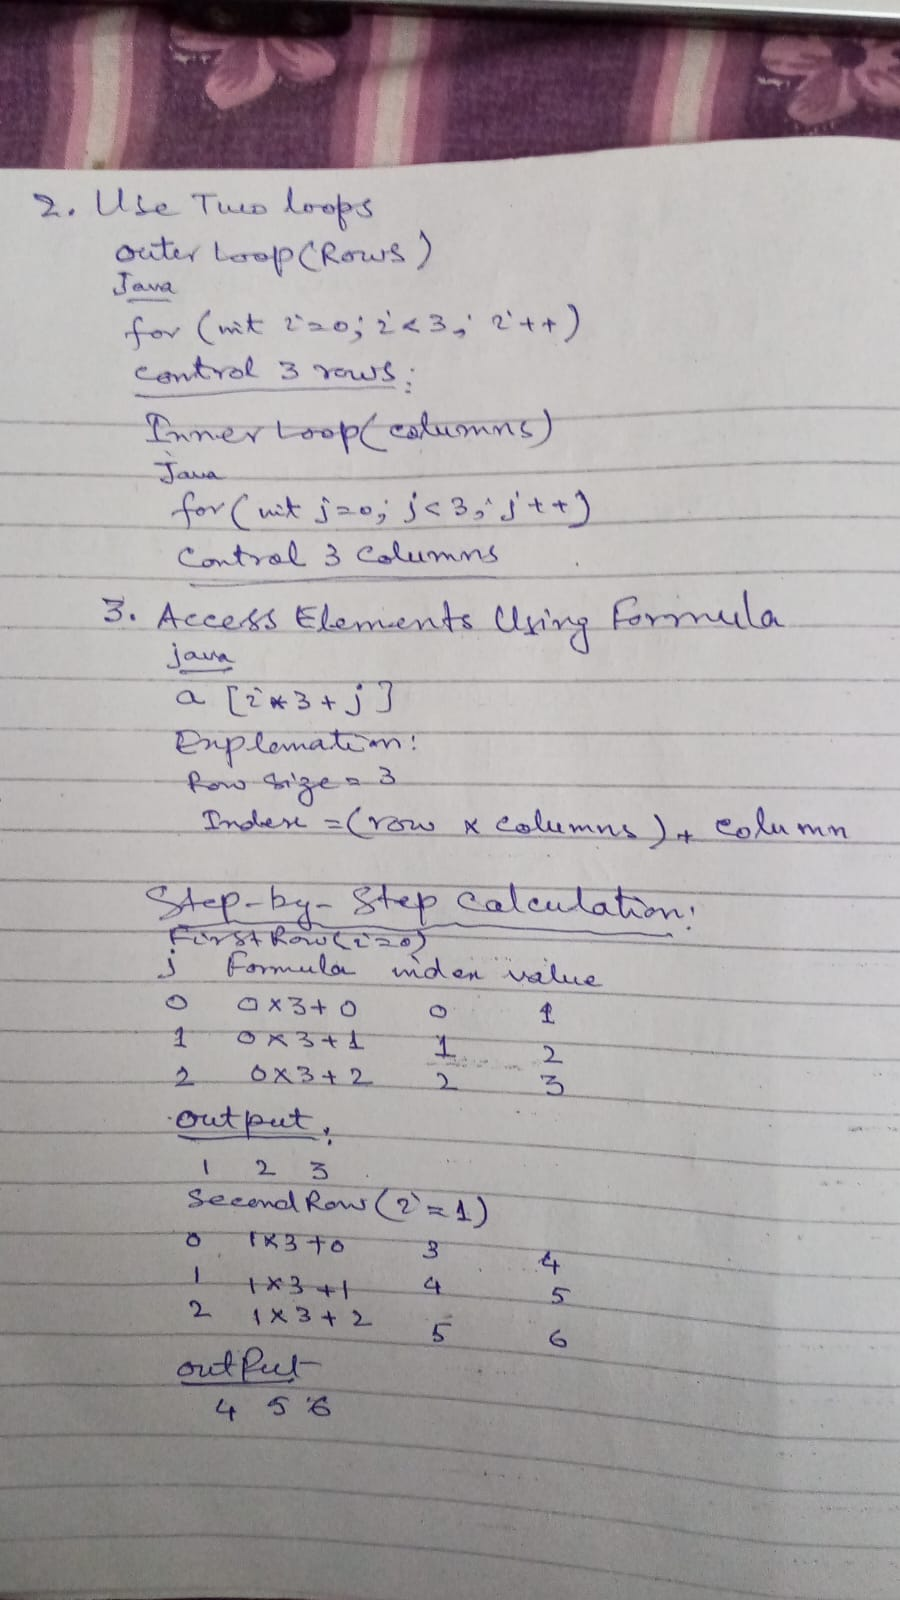 2. Use Two loops
outer Loop (Rows)
Java
for (int i=0; i<3; i++)
control 3 rows:
Inner Loop (columns)
Java
for (int j=0; j<3; j++)
Control 3 Columns
3. Access Elements Using Formula
java
a [i*3+j]
Explanation:
Row size = 3
Index = (row x columns) + column
Step-by-Step Calculation:
First Row (i=0)
j Formula index value
0 0x3+0 0 1
1 0x3+1 1 2
2 0x3+2 2 3
output:
1 2 3
Second Row (i=1)
0 1x3+0 3 4
1 1x3+1 4 5
2 1x3+2 5 6
output
4 5 6